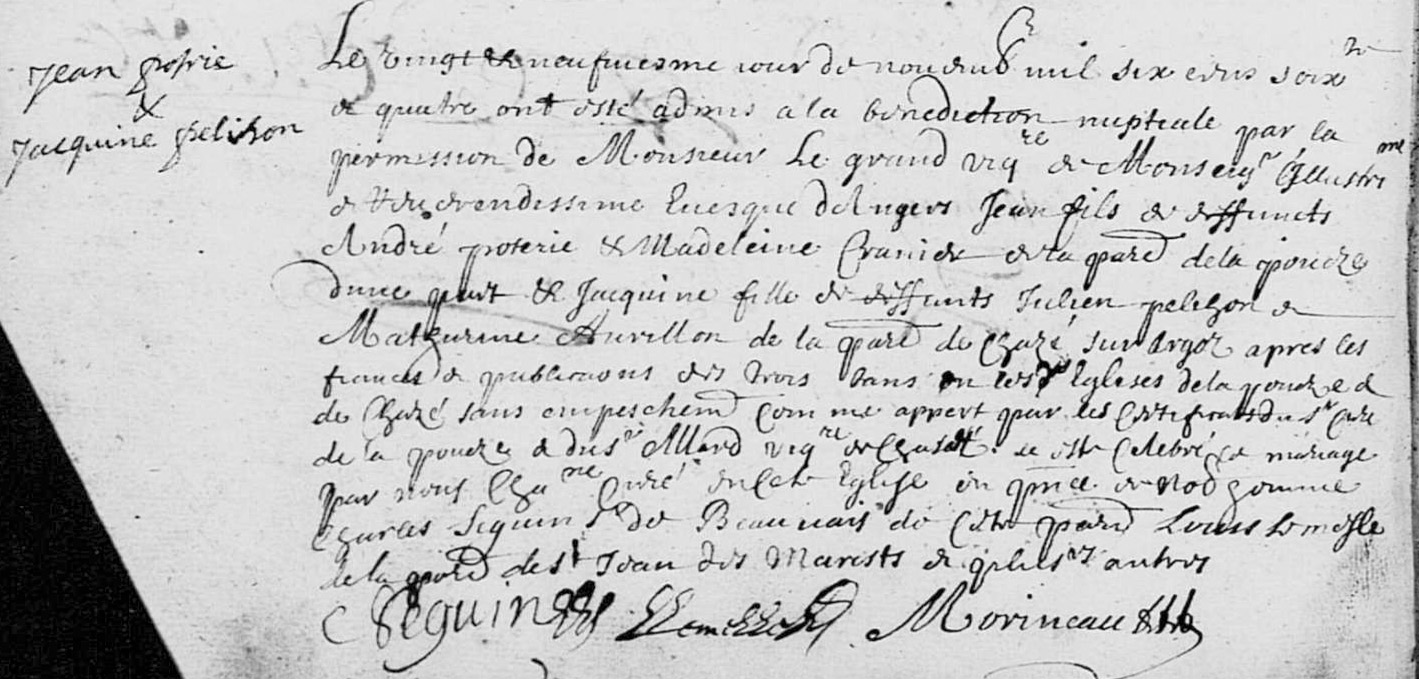 Jean Potrie
&
Jacquine Pelizon
Le vingt & neufuiesme iour de nouemb^r mil six cens soix^te
& quatre ont esté admis a la benediction nuptiale par la
permission de Monsieur Le grand vicq^re de Monseig^r Illustri^me
& Reuerendissime Euesque dAngers Jean fils de deffuncts
André poterie & Madeleine de la par^e dela poueze
dune part & Jacquine fille de deffunts Iulien pelizon &
Mathurine de la par^e de Chazé sur Argoz apres les
fiances & publicaons des trois bans en les Eglises dela poueze &
de Chazé sans empeschem^t Comme appert par les Certificats du s^r Curé
de la poueze & du s^r Allard vicq^re de Chasé a este Celebré ce mariage
par nous Curé en Cete Eglise en pnce de nod homme
Charles Seguin S^r de Beauuais de Cete par^e Louis Lemesle
de la par^e de S^t Jean des Marests & plus^rs autres
C Seguin Morineau